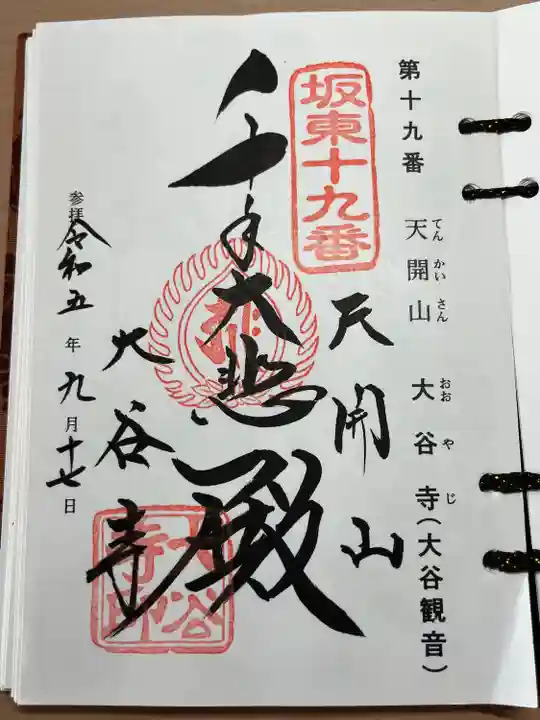 第十九番 天開山 大谷寺(大谷観音)
てん かい さん おお や じ
坂東十九番
天開山
千手大悲殿
大谷寺
参拝 令和五年九月十七日